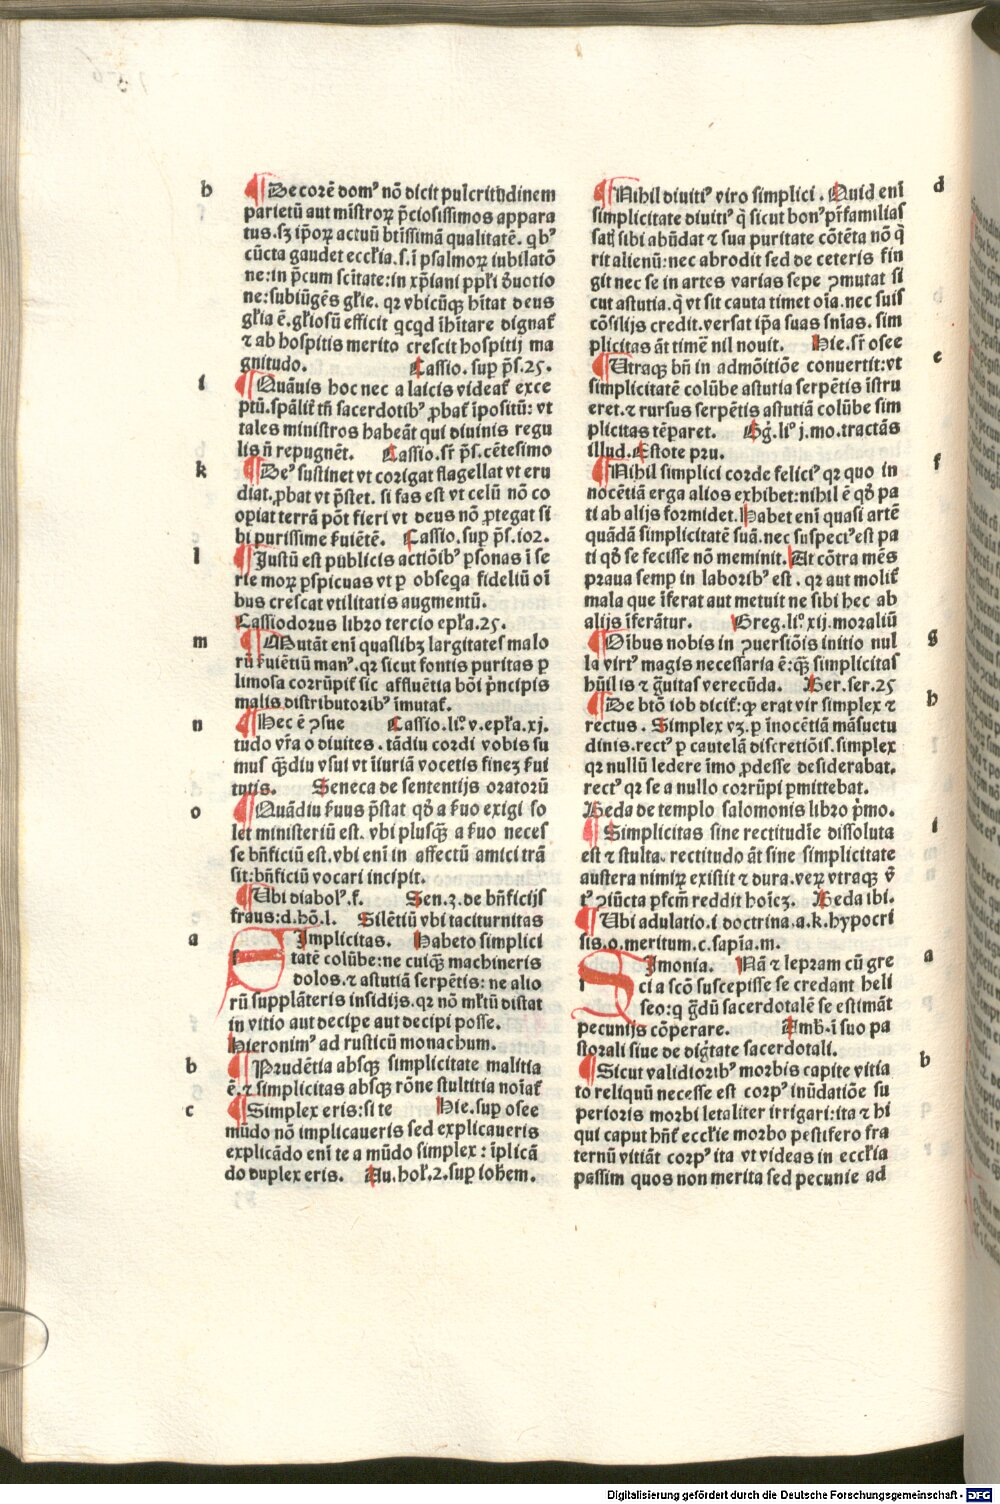 h
De corē domꝰ nō dicit pulcritudinem
parietū aut mīstroꝝ p̄ciosissimos appara
tus.sꝫ ip̄oꝝ actuū btīssimā qualitatē. qbꝰ
cūcta gaudet eccl̄ia.s.ī psalmoꝝ iubilatō
ne:in p̄cum scītate:in xp̄iani pp̄li deuotio
ne:subiūgēs gl̄ie. qꝛ vbicūqꝫ hītat deus
gl̄ia ē.gl̄iosū efficit qcqd īhītare dignat̄
ꞇ ab hospitis merito crescit hospitij ma
gnitudo. Cassio.sup p̄s.25.
i
Quāuis hoc nec a laicis videat̄ exce
ptū.spālit̄ tn̄ sacerdotibꝰ ꝓbat̄ īpositū: vt
tales ministros habeāt qui diuinis regu
lis n̄ repugnēt. Cassio.sr̄ p̄s.cētesimo
k
Deꝰ sustinet vt corigat flagellat vt eru
diat.ꝓbat vt p̄stet. si fas est vt celū nō co
opiat terrā pōt fieri vt deus nō ꝓtegat si
bi purissime fuiētē. Cassio.sup p̄s.102.
l
Justū est publicis actiōibꝰ ꝑsonas ī se
rie moꝝ ꝑspicuas vt ꝑ obseqa fideliū oī
bus crescat vtilitatis augmentū.
Cassiodorus libro tercio epl̄a.25.
m
Mutāt enī quaslibꝫ largitates malo
rū fuiētiū manꝰ.qꝛ sicut fontis puritas ꝑ
limosa corrūpit̄ sic affluētia bōi p̄ncipis
malis distributoribꝰ īmutat̄.
n
Hec ē ꝯsue Cassio.liº.v.epl̄a.xj.
tudo vr̄a o diuites. tādiu cordi vobis su
mus q̄ꝫdiu vsui vt īiuriā vocetis finez fui
tutis. Seneca de sententijs oratorū
o
Quādiu fuus p̄stat qd̄ a fuo exigi so
let ministeriū est. vbi plusq̄ꝫ a fuo neces
se bn̄ficiū est.vbi enī in affectū amici trā
sit:bn̄ficiū vocari incipit.
Ubi diabolꝰ.f. Sen.3.de bn̄ficijs
fraus:d.hō.l. Silētiū vbi taciturnitas
a
Implicitas. Habeto simplici
tatē colūbe:ne cuiqꝫ machineris
dolos.ꞇ astutiā serpētis: ne alio
rū supplāteris insidijs.qꝛ nō ml̄tū distat
in vitio aut decipe aut decipi posse.
Hieronimꝰ ad rusticū monachum.
b
Prudētia absqꝫ simplicitate malitia
ē.ꞇ simplicitas absqꝫ rōne stultitia noīat̄
c
Simplex eris:si te Hie.sup osee
mūdo nō implicaueris sed explicaueris
explicādo enī te a mūdo simplex : īplicā
do duplex eris. Au.hol̄.2.sup ioh̄em.
d
Nihil diuitiꝰ viro simplici . Quid enī
simplicitate diuitiꝰ q̄ sicut bonꝰ pr̄familias
sat̄ sibi abūdat ꞇ sua puritate cōtēta nō q̄
rit alienū:nec abrodit sed de ceteris fin
git nec se in artes varias sepe ꝯmutat si
cut astutia.q̄ vt sit cauta timet oīa.nec suis
cōsilijs credit.versat ip̄a suas snīas. sim
plicitas āt timē nil nouit. Hie.sr̄ osee
e
Utraqꝫ hn̄ in admōitiōe conuertit:vt
simplicitatē colūbe astutia serpētis īstru
eret.ꞇ rursus serpētis astutiā colūbe sim
plicitas tēparet. Gg̓.liº j.mo.tractās
illud.Estote pru.
f
Nihil simplici corde feliciꝰ qꝛ quo in
nocētiā erga alios exhibet:nihil ē qd̄ pa
ti ab alijs formidet.Habet enī quasi artē
quādā simplicitatē suā.nec suspectꝰest pa
ti qd̄ se fecisse nō meminit.At cōtra mēs
praua semp in laboribꝰ est . qꝛ aut molit̄
mala que īferat aut metuit ne sibi hec ab
alijs īferātur. Greg.liº.xij.moraliū
g
Oībus nobis in ꝯuersiōis initio nul
la virtꝰ magis necessaria ē:q̄ꝫ simplicitas
hūilis ꞇ g̓uitas verecūda. Ber.ser.25
h
De btō iob dicit̄:ꝙ erat vir simplex ꞇ
rectus. Simplex vꝫ.ꝑ īnocētiā māsuetu
dinis.rectꝰ ꝑ cautelā discretiōis.simplex
qꝛ nullū ledere īmo ꝓdesse desiderabat.
rectꝰ qꝛ se a nullo corrūpi ꝑmittebat.
Beda de templo salomonis libro p̓mo.
i
Simplicitas sine rectitudīe dissoluta
est ꞇ stulta. rectitudo āt sine simplicitate
austera nimiꝝ existit ꞇ dura.veꝝ vtraqꝫ v̄
tꝰ ꝯiūcta pfcm̄ reddit hoīeꝫ. Beda ibi.
Ubi adulatio.i doctrina.a.k.hypocri
sis.o.meritum.c.sapīa.m.
a
Imonia. Nā ꞇ lepram cū gre
ci a scō suscepisse se credant heli
seo:q g̓dū sacerdotalē se estimāt
pecunijs cōperare. Amb.ī suo pa
storali siue de dig̓tate sacerdotali.
b
Sicut validioribꝰ morbis capite vitia
to reliquū necesse est corpꝰ inūdatiōe su
perioris morbi letaliter irrigari:ita ꞇ hi
qui caput hn̄t eccl̄ie morbo pestifero fra
ternū vitiāt corpꝰ ita vt videas in eccl̄ia
passim quos non merita sed pecunie ad
Digitalisierung gefördert durch die Deutsche Forschungsgemeinschaft - DFG